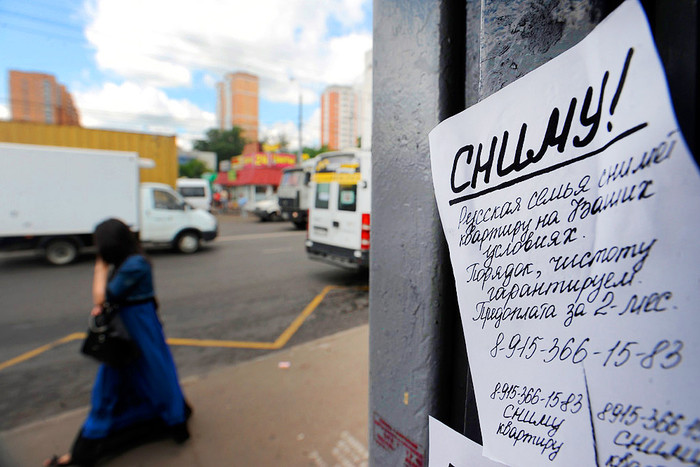 СНИМУ!
Русская семья снимет
квартиру на Ваших
условиях.
Порядок, чистоту
гарантируем.
Предоплата за 2-мес.
8-915-366-15-83
8915-366-15-83
сниму
квартиру
8915-366-
сниму